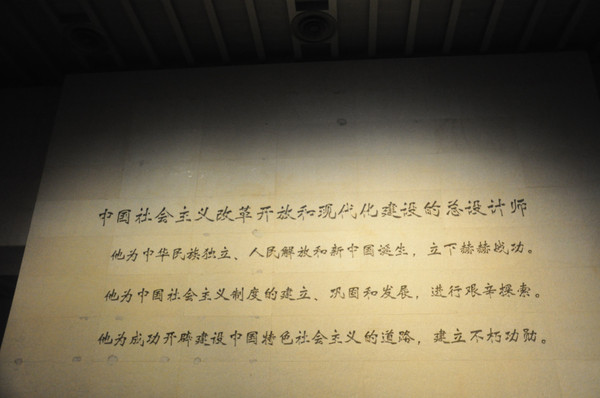 中国社会主义改革开放和现代化建设的总设计师
他为中华民族独立、人民解放和新中国诞生，立下赫赫战功。
他为中国社会主义制度的建立、巩固和发展，进行艰辛探索。
他为成功开辟建设中国特色社会主义的道路，建立不朽功勋。